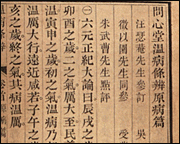 問心堂溫病條辨原病篇
汪瑟菴先生參訂 吳
徵以園先生同參 受
朱武曹先生點評
一六元正紀大論曰辰戌之
卯酉之歲二之氣厲大至民
溫寅申之歲初之氣溫病
溫厲大行遠近咸若子午之
亥之歲終之氣其病溫厲